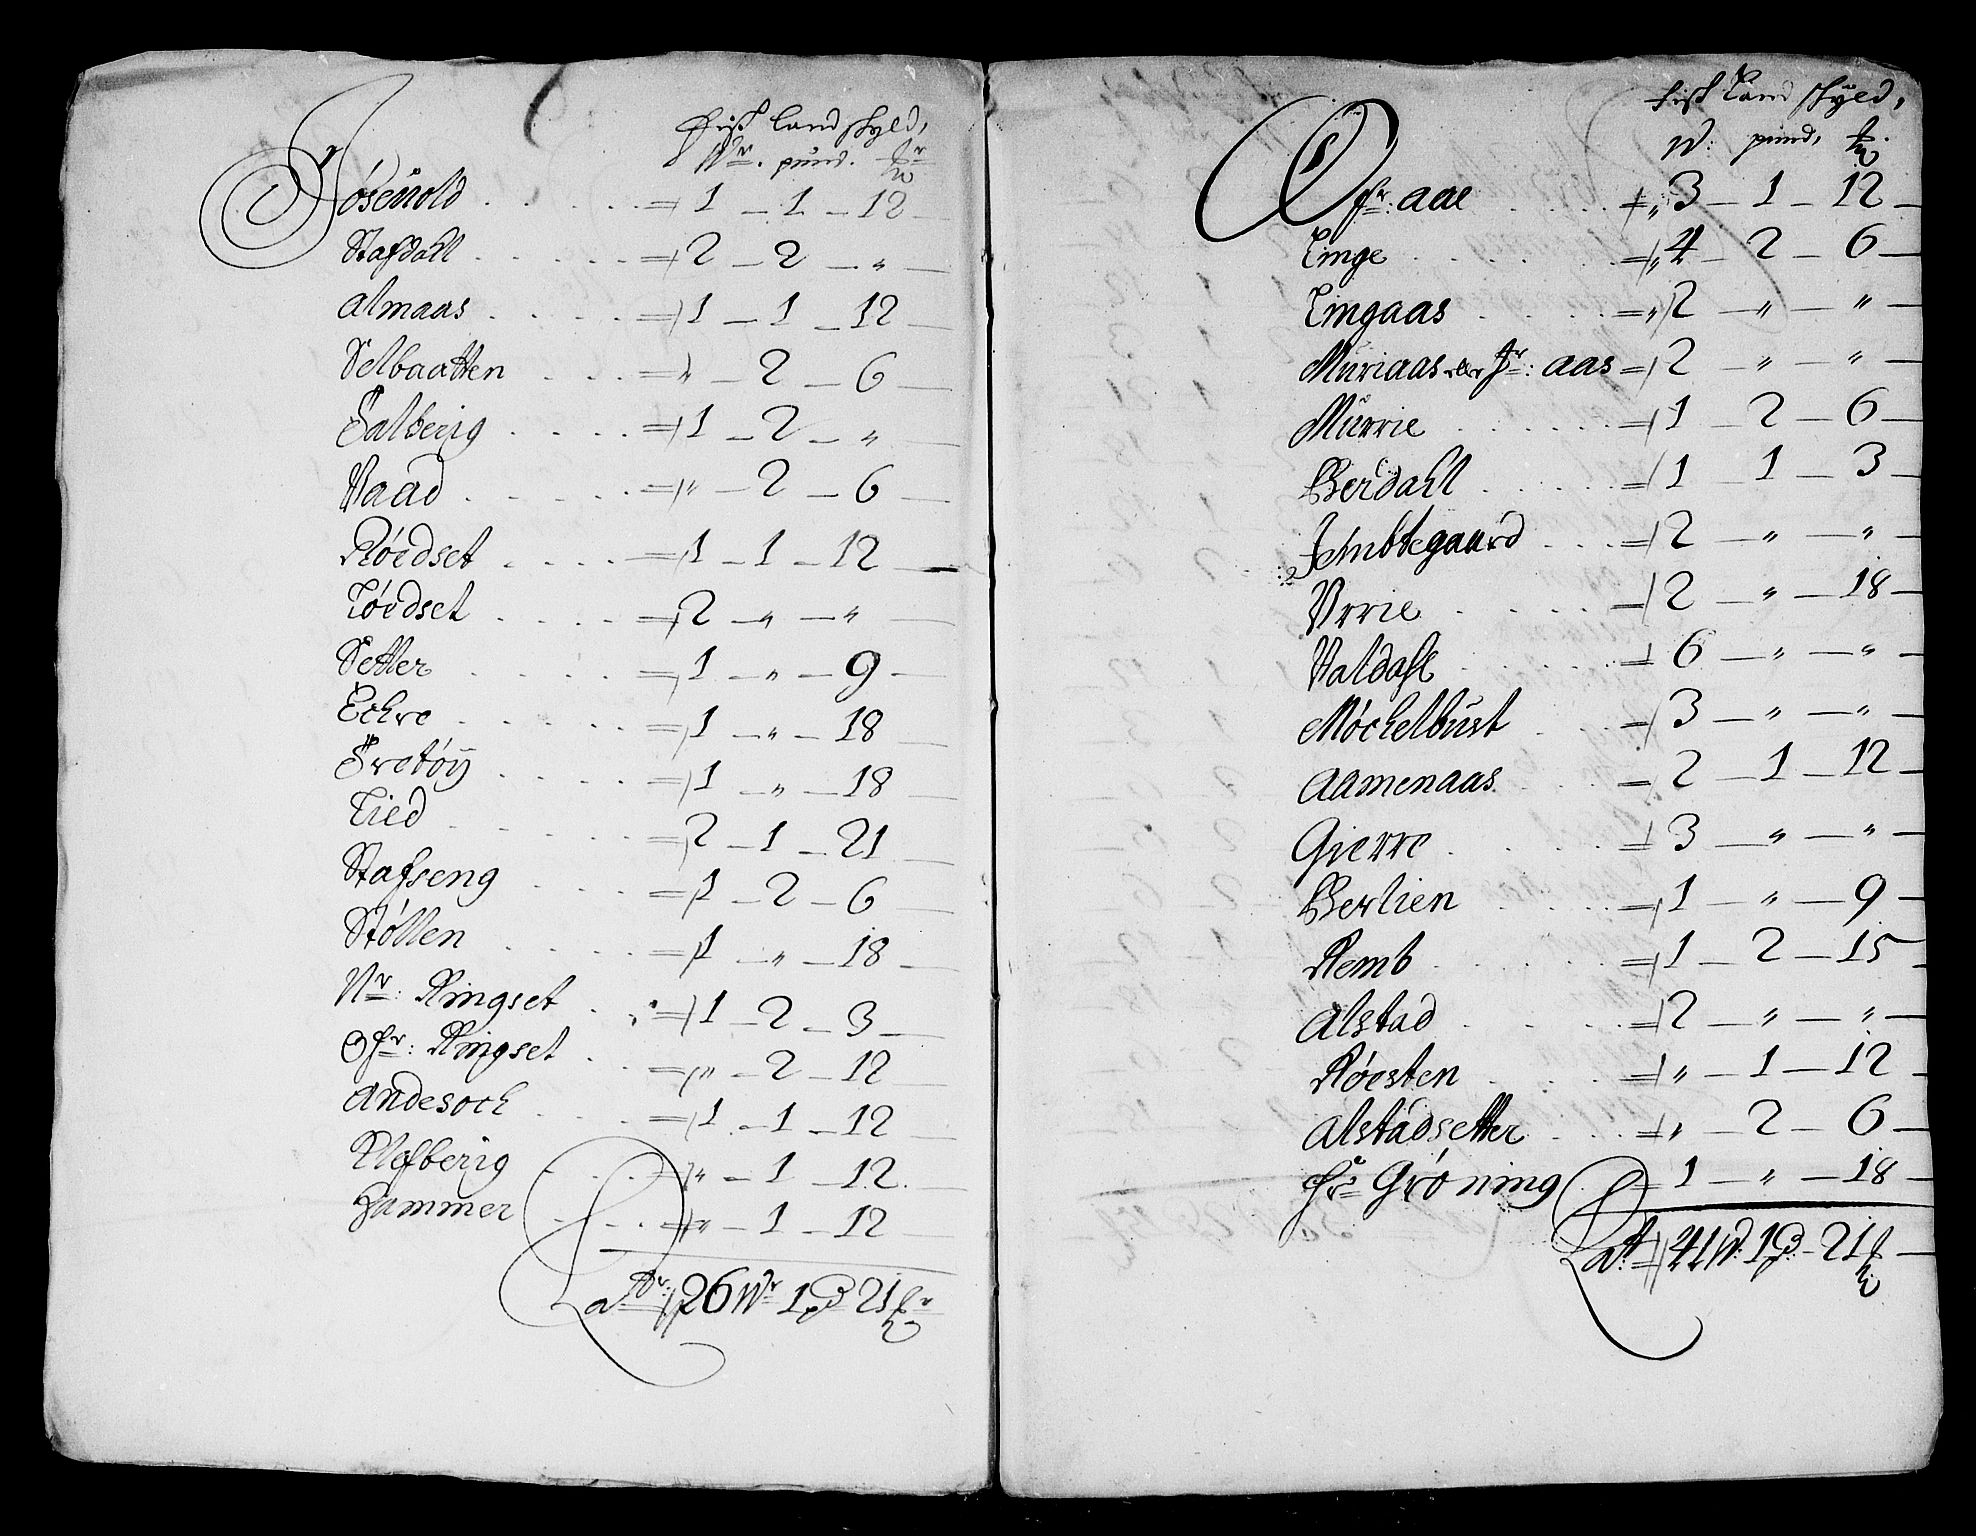 Fisk land skyld,
Wr. pund. 
Jösenold = 1 — 1 — 12 —
Stafdall = 2 — 2 — „ —
Almaas = 1 — 1 — 12 —
Selbaatten = „ — 2 — 6 —
Salberig = 1 — 2 — „ —
Vaad = „ — 2 — 6 —
Röedset = 1 — 1 — 12 —
Töedset = 2 — „ — „
Setter = 1 — „ — 9 —
Echre = 1 — „ — 18 —
Sretöÿ = 1 — „ — 18 —
Lied = 2 — 1 — 21 —
Stafseng = 1 — 2 — 6 —
Stöllen = 1 — „ — 18 —
Nr: Ringset = 1 — 2 — 3 —
Ofr: Ringset = „ — 2 — 12 —
Andesoch = 1 — 1 — 12 —
Klefberig = „ — 1 — 12 —
Hammer = „ — 1 — 12 —
Latr: 26 Wr 1 pd 21
Fisk Land skyld,
W: pund,
Ofr: aae = 3 — 1 — 12 —
Linge = 4 — 2 — 6 —
Lingaas = 2 — „ — „ —
Muriaas eller Ifr: aas = 2 — „ — „ —
Murrie = 1 — 2 — 6 —
Berdahl = 1 — 1 — 3 —
Jembtegaard = 2 — „ — „ —
Vrrie = 2 — „ — 18 —
Valdahl = 6 — „ — „ —
Möchelbust = 3 — „ — „ —
Aamenaas = 2 — 1 — 12 —
Gierre = 3 — „ — „ —
Berlien = 1 — „ — 9 —
Remb = 1 — 2 — 15 —
Alstad = 2 — „ — „ —
Röesten = „ — 1 — 12 —
Alstadsetter = „ — 2 — 6 —
Gröning = 1 — „ — 18 —
Lat: 41 W: 1 pd: 21